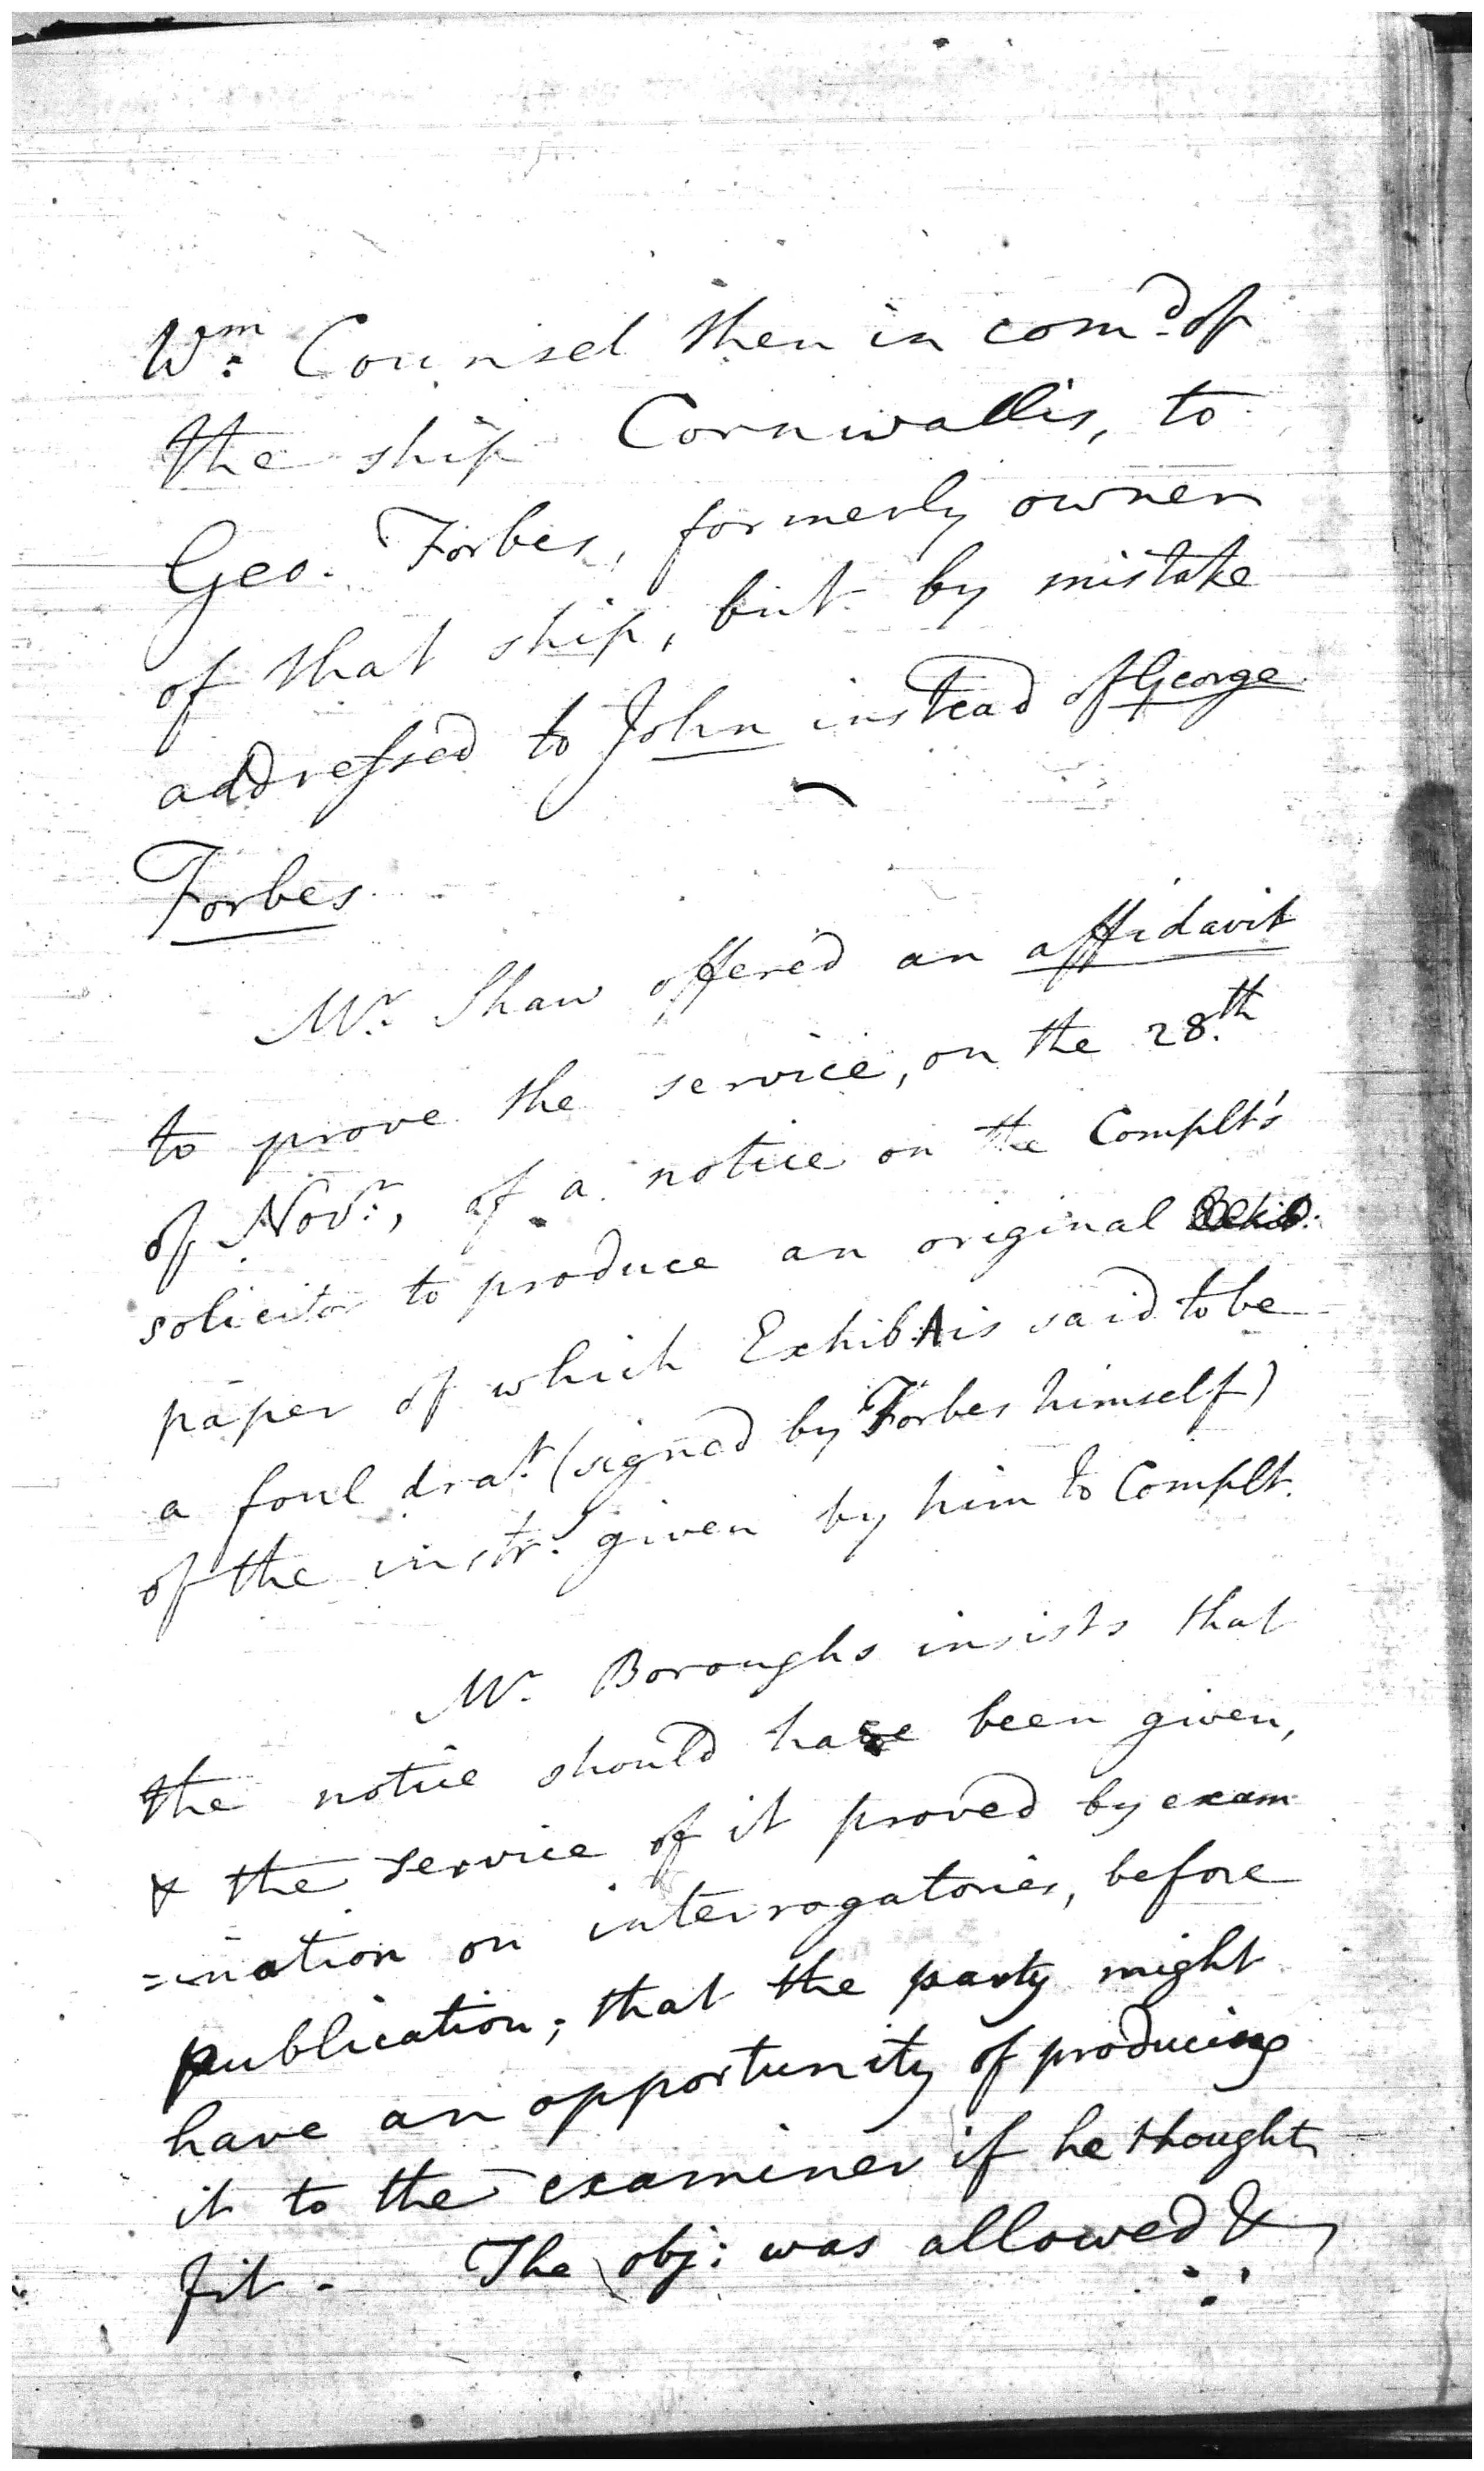 Wm. Counsel then in comd. of
the ship Cornwallis, to
Geo. Forbes, formerly owner
of that ship, but by mistake
addressed to John instead of George
Forbes
Mr. Shaw offered an affidavit
to prove the service, on the 28.th
of Novr., of a notice on the Complt's
solicitor to produce an original
paper of which Exhib. A is said to be
a foul drat. (signed by Forbes himself)
of the instr. given by him to Complt.
Mr. Boroughs insists that
the notice should have been given,
& the service of it proved by exam
=ination on interrogatories, before
publication; that the party might
have an opportunity of producing
it to the examiner if he thought
fit - The obj: was allowed &